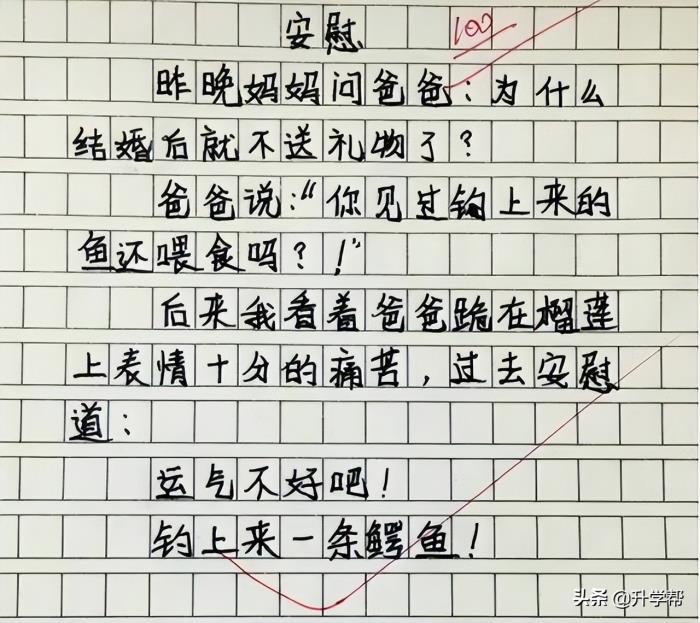 安慰
100
昨晚妈妈问爸爸：为什么
结婚后就不送礼物了？
爸爸说：“你见过钩上来的
鱼还喂食吗？！”
后来我看着爸爸跪在榴莲
上表情十分的痛苦，过去安慰
道：
运气不好吧！
钓上来一条鳄鱼！
头条 @升学帮